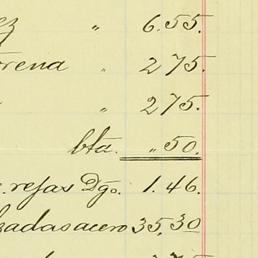 " 6.55.
rena " 275.
" 275.
bta. " 50.
. rejas Dgo. 1.46.
zadas acero 35.30